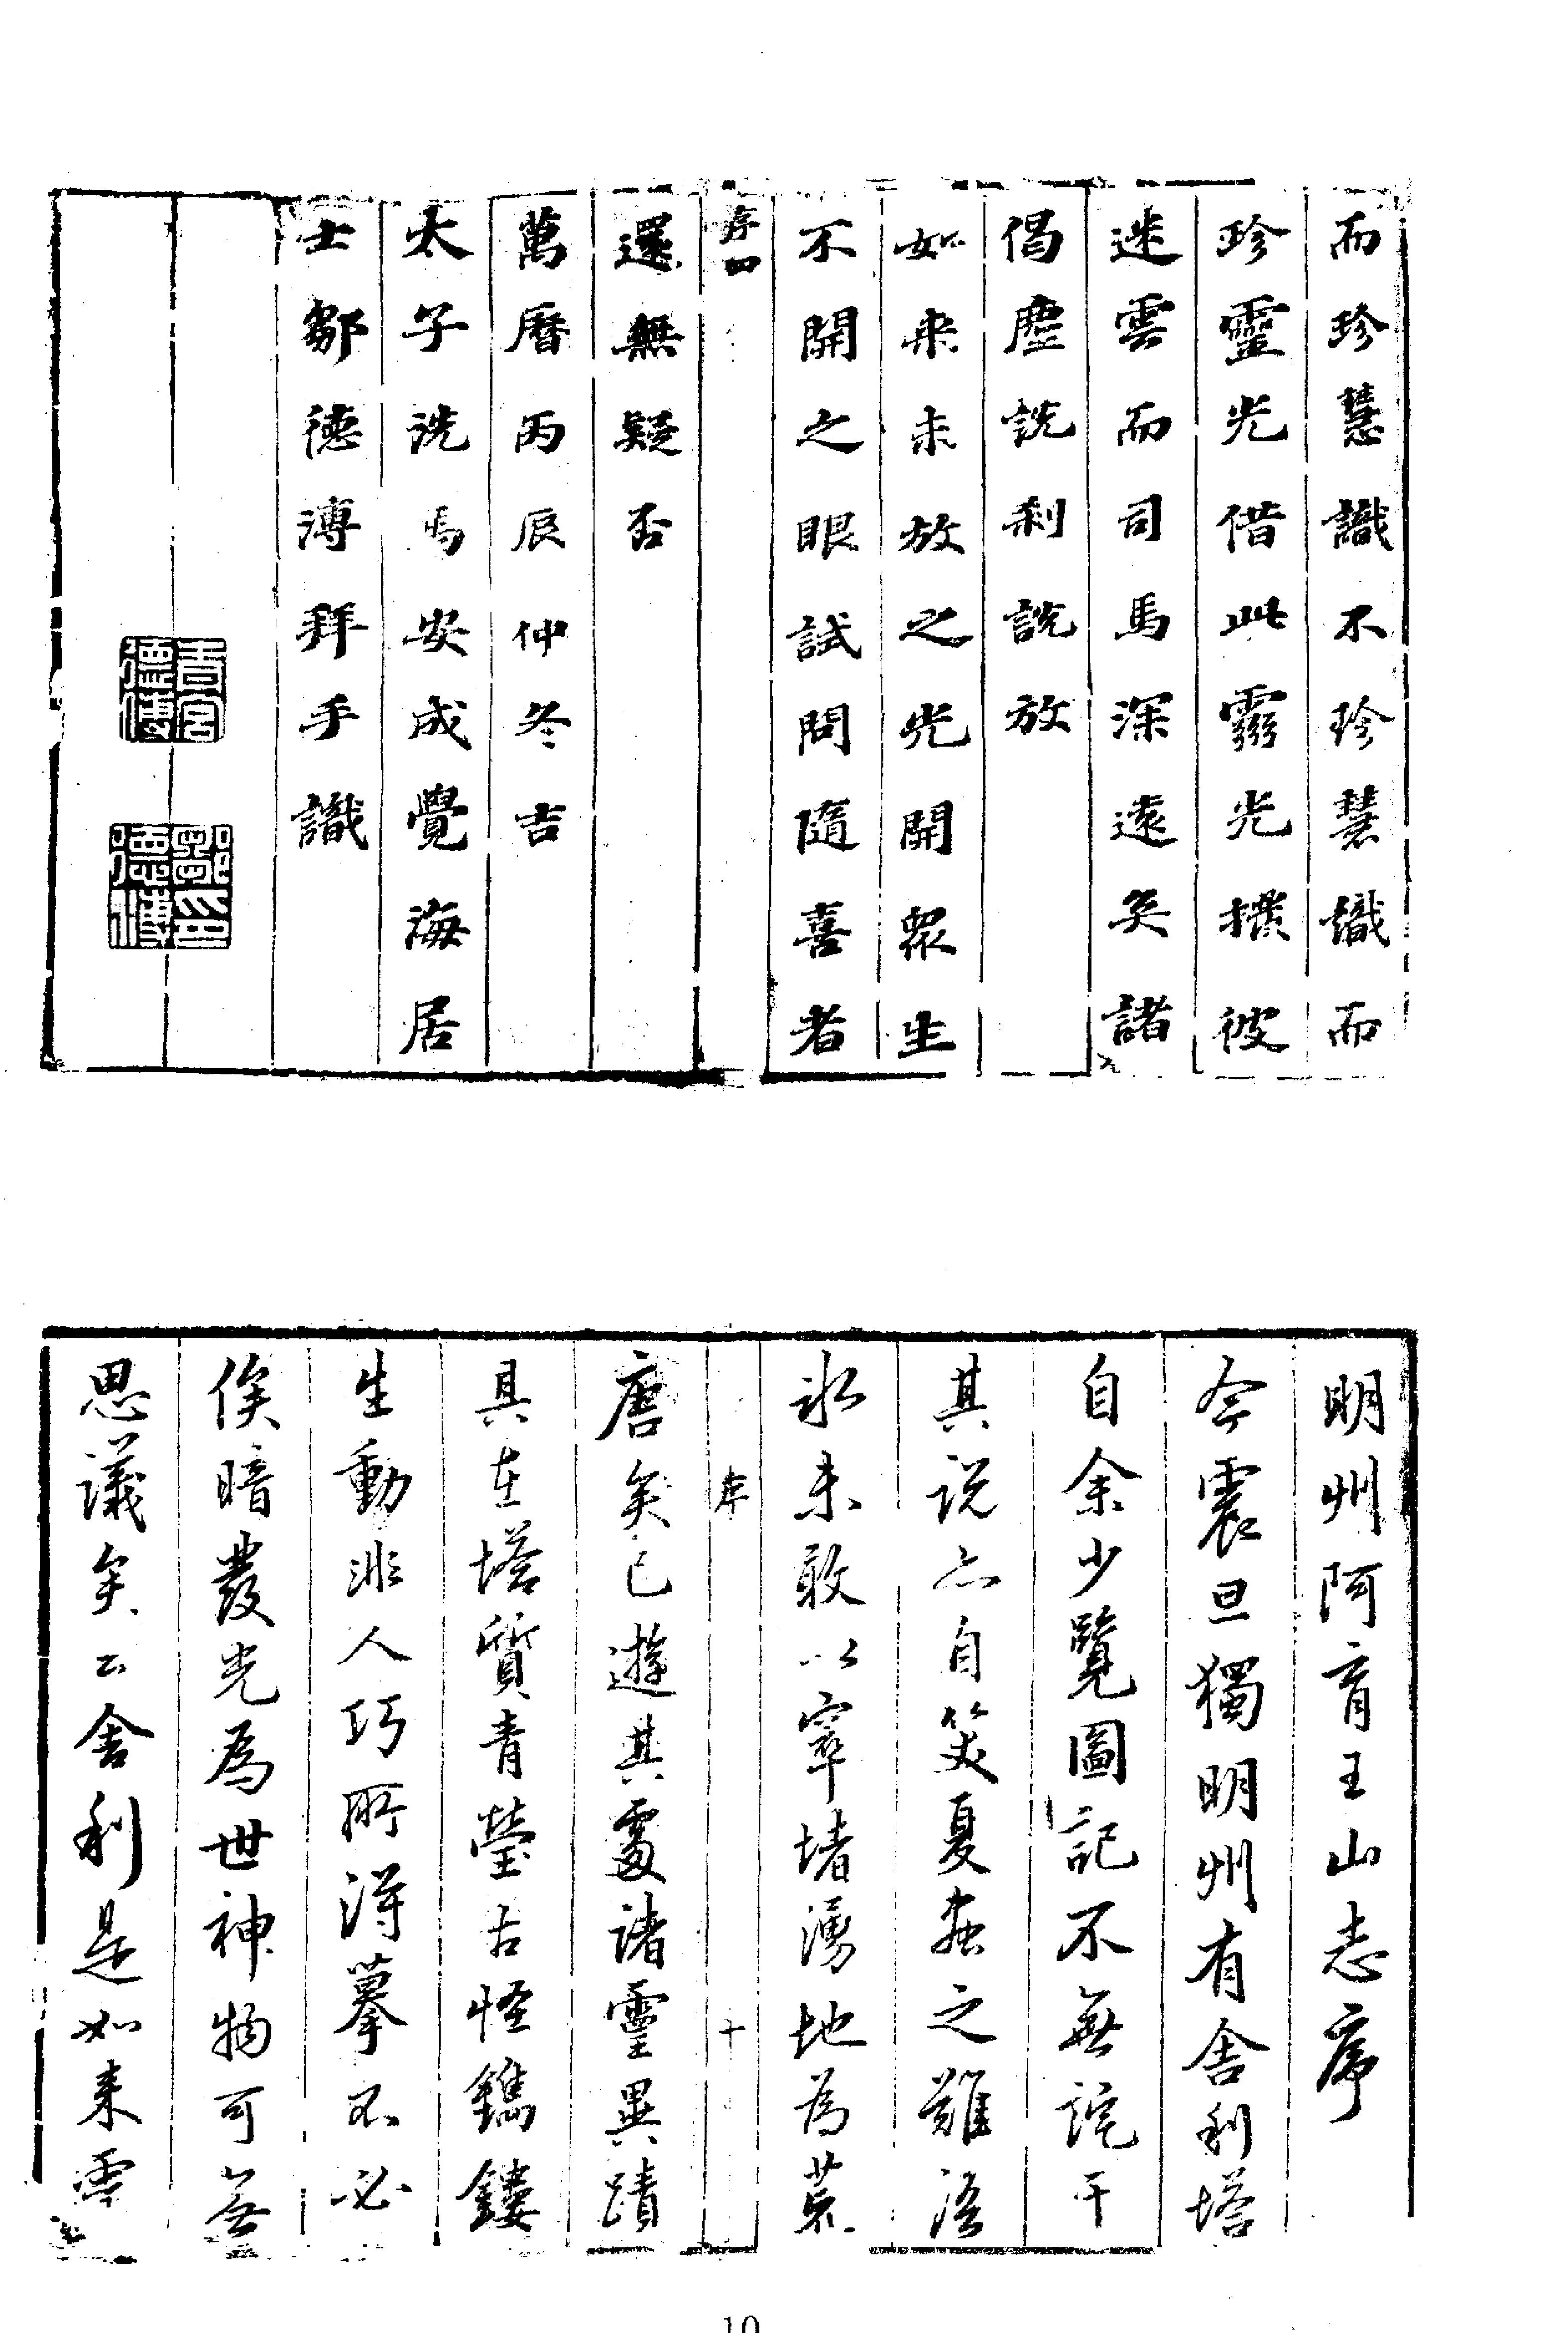 而珍慧識不珍慧識而
珍靈光借此靈光撥彼
迷雲而司馬深遠矣諸
偈塵說刹說放
如来未放之光開眾生
不開之眼試問隨喜者
序四
還無疑否
萬曆丙辰仲冬吉
太子洗馬安成覺海居
士鄒德溥拜手識
鄒印德溥
明州阿育王山志序
今震旦獨明州有舍利塔
自余少覽圖記不無詫干
其説亦自笑夏虫之難語
冰未敢以窣堵湧地為荒
序
十
唐矣已遊其處諸靈異蹟
具在塔質青瑩古怪鐫鏤
生動非人巧所得摹不必
俟暗發光為世神物可無
思議矣云舍利是如来靈
10